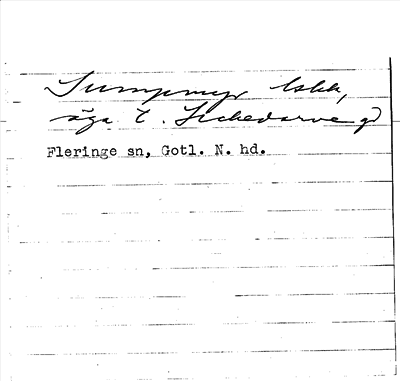 Sumpmyr, lskk,
äga t. Lickedarve gd
Fleringe sn, Gotl. N. hd.